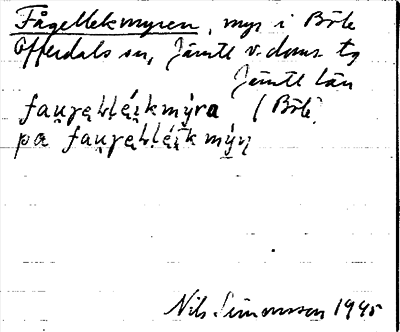 Fågellekmyren, myr i Böle
Offerdals sn, Jämtl v. doms tg
Jämtl län
fau̯ręlʹḷéi̯kmýra (Böle)
pœ fau̯ręlʹḷéi̯k mýn̥
Nils Simonsson 1945